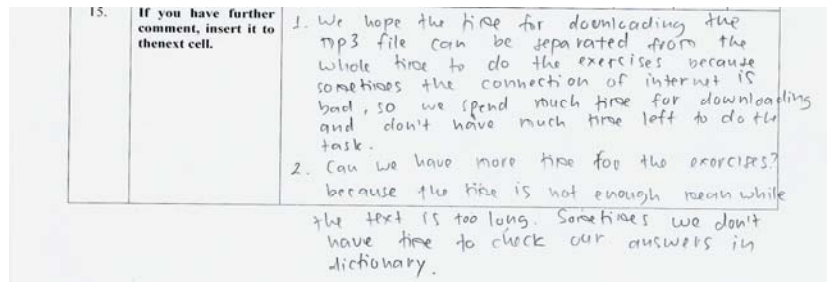 15.
If you have further
comment, insert it to
thenext cell.
1. We hope the time for downloading the
mp3 file can be separated from the
whole time to do the exercises because
sometimes the connection of internet is
bad, so we spend much time for downloading
and don't have much time left to do the
task.
2. Can we have more time for the exercises?
because the time is not enough meanwhile
the text is too long. Sometimes we don't
have time to check our answers in
dictionary.